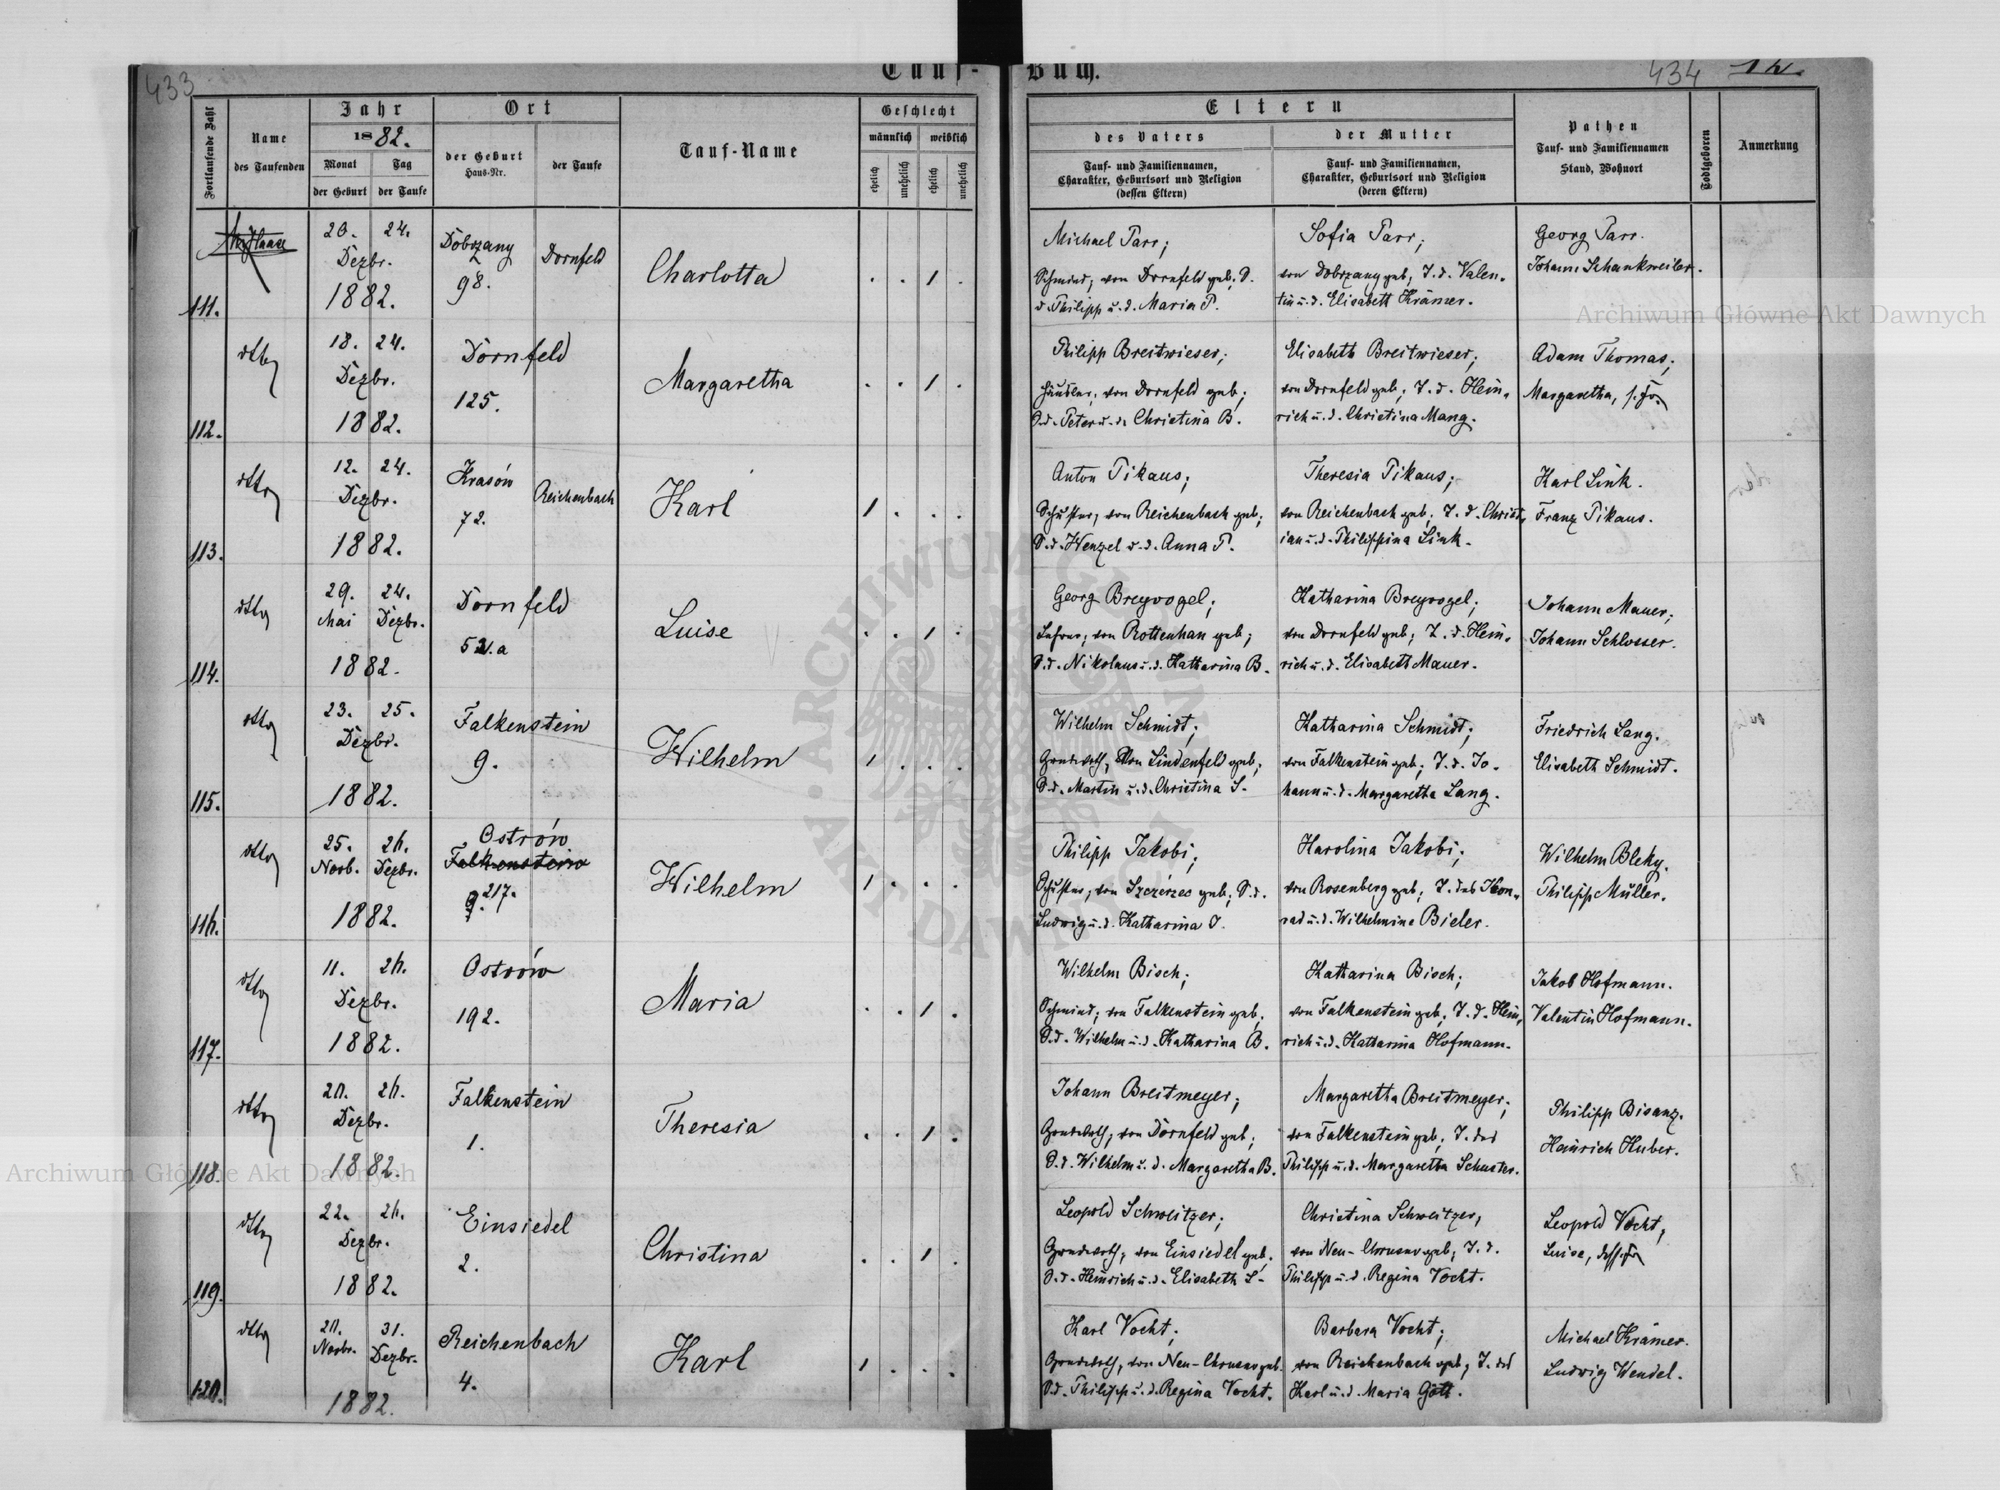 433
Tauf-
Buch.
434
12.
Fortlaufende Zahl
Name
des Taufenden
Jahr
1882.
Monat
Tag
der Geburt
der Taufe
Ort
der Geburt
Haus-Nr.
der Taufe
Tauf-Name
Geschlecht
männlich
weiblich
ehelich
unehelich
ehelich
unehelich
Eltern
des Vaters
Tauf- und Familiennamen,
Charakter, Geburtsort und Religion
(dessen Eltern)
der Mutter
Tauf- und Familiennamen,
Charakter, Geburtsort und Religion
(deren Eltern)
Pathen
Tauf- und Familiennamen
Stand, Wohnort
Todtgeboren
Anmerkung
111.
20. 24.
Dezbr.
1882.
Dobrzany
98.
Dornfeld
Charlotta
. . 1 .
Michael Parr;
Schmied, von Dornfeld geb; S.
d. Philipp u. d. Maria P.
Sofia Parr;
von Dobrzany geb; T. d. Valen-
tin u. d. Elisabeth Krämer.
Georg Parr.
Johann Schankweiler.
112.
dtto
18. 24.
Dezbr.
1882.
Dornfeld
125.
Margaretha
. . 1 .
Philipp Breitwieser;
Häusler, von Dornfeld geb;
S. d. Peter u. d. Christina B.
Elisabeth Breitwieser;
von Dornfeld geb; T. d. Hein-
rich u. d. Christina Mang.
Adam Thomas;
Margaretha, s. Fr.
113.
dtto
12. 24.
Dezbr.
1882.
Krasów
72.
Reichenbach
Karl
1 . . .
Anton Pikaus;
Schuster, von Reichenbach geb;
S. d. Wenzel u. d. Anna P.
Theresia Pikaus;
von Reichenbach geb; T. d. Christ-
ian u. d. Philippina Link.
Karl Link.
Franz Pikaus.
114.
dtto
29. 24.
Mai Dezbr.
1882.
Dornfeld
52.a
Luise
. . 1 .
Georg Breyvogel;
Lehrer, von Rottenhan geb;
S. d. Nikolaus u. d. Katharina B.
Katharina Breyvogel;
von Dornfeld geb; T. d. Hein-
rich u. d. Elisabeth Mauer.
Johann Mauer;
Johann Schlosser.
115.
dtto
23. 25.
Dezbr.
1882.
Falkenstein
9.
Wilhelm
1 . . .
Wilhelm Schmidt;
Grundwth, von Lindenfeld geb;
S. d. Martin u. d. Christina S.
Katharina Schmidt;
von Falkenstein geb; T. d. Jo-
hann u. d. Margaretha Lang.
Friedrich Lang.
Elisabeth Schmidt.
116.
dtto
25. 26.
Novb. Dezbr.
1882.
Ostrów
Falkenstein
9. 217.
Wilhelm
1 . . .
Philipp Jakobi;
Schuster, von Szczerzec geb; S. d.
Ludwig u. d. Katharina J.
Karolina Jakobi;
von Rosenberg geb; T. des Kon-
rad u. d. Wilhelmine Bieler.
Wilhelm Bleky.
Philipp Müller.
117.
dtto
11. 26.
Dezbr.
1882.
Ostrów
192.
Maria
. . 1 .
Wilhelm Bisch;
Schmied, von Falkenstein geb;
S. d. Wilhelm u. d. Katharina B.
Katharina Bisch;
von Falkenstein geb; T. d. Hein-
rich u. d. Katharina Hofmann.
Jakob Hofmann.
Valentin Hofmann.
118.
dtto
20. 26.
Dezbr.
1882.
Falkenstein
1.
Theresia
. . 1 .
Johann Breitmeyer;
Grundwth, von Dornfeld geb;
S. d. Wilhelm u. d. Margaretha B.
Margaretha Breitmeyer;
von Falkenstein geb; T. des
Philipp u. d. Margaretha Schuster.
Philipp Bisanz.
Heinrich Huber.
119.
dtto
22. 26.
Dezbr.
1882.
Einsiedel
2.
Christina
. . 1 .
Leopold Schweitzer;
Grundwth, von Einsiedel geb;
S. d. Heinrich u. d. Elisabeth S.
Christina Schweitzer;
von Neu-Chrusno geb; T. d.
Philipp u. d. Regina Vocht.
Leopold Vocht,
Luise, dess. Fr.
120.
dtto
20. 31.
Novbr. Dezbr.
1882.
Reichenbach
4.
Karl
1 . . .
Karl Vocht;
Grundwth, von Neu-Chrusno geb.
S. d. Philipp u. d. Regina Vocht.
Barbara Vocht;
von Reichenbach geb; T. des
Karl u. d. Maria Gött.
Michael Krämer.
Ludwig Wendel.
Archiwum Główne Akt Dawnych
Archiwum Główne Akt Dawnych